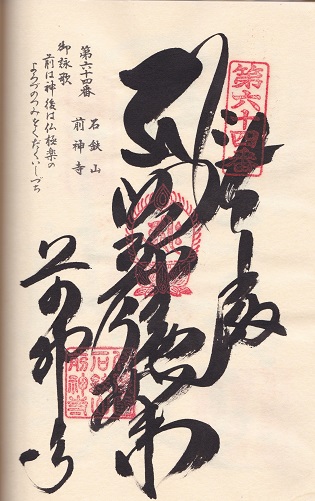 第六十四番
阿弥陀如来
前神寺
第六十四番
石鉄山
前神寺
御詠歌
前は神後は仏極楽の
よろづのつみをくだくいしづち